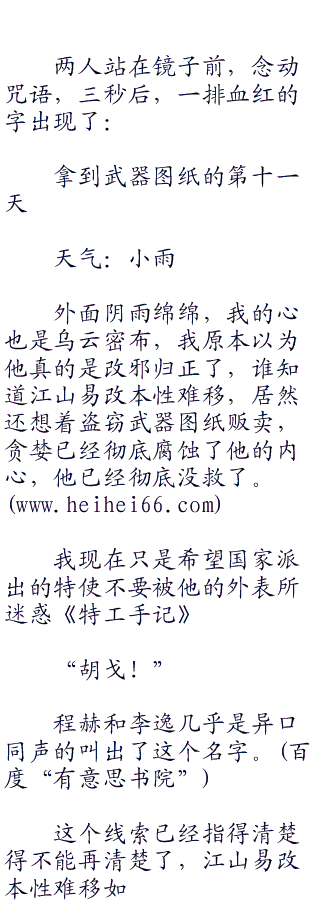 两人站在镜子前，念动
咒语，三秒后，一排血红的
字出现了：
拿到武器图纸的第十一
天
天气：小雨
外面阴雨绵绵，我的心
也是乌云密布，我原本以为
他真的是改邪归正了，谁知
道江山易改本性难移，居然
还想着盗窃武器图纸贩卖，
贪婪已经彻底腐蚀了他的内
心，他已经彻底没救了。
(www.heihei66.com)
我现在只是希望国家派
出的特使不要被他的外表所
迷惑《特工手记》
“胡戈！”
程赫和李逸几乎是异口
同声的叫出了这个名字。(百
度“有意思书院”)
这个线索已经指得清楚
得不能再清楚了，江山易改
本性难移如